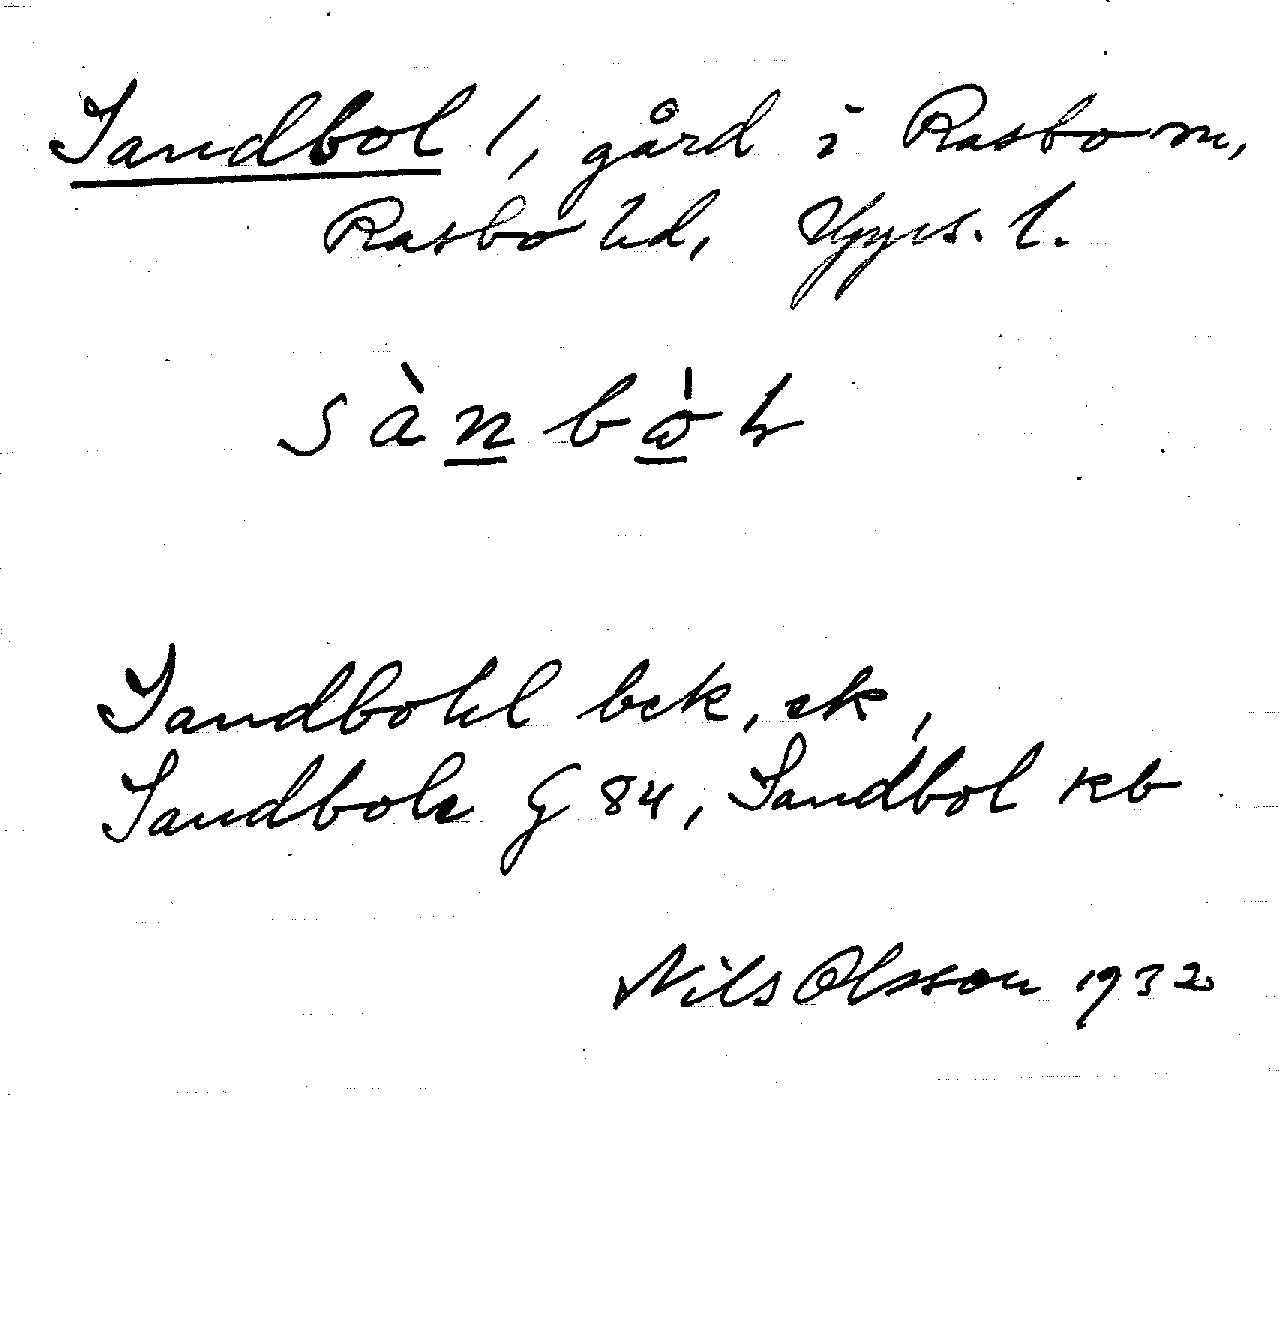 Sandbol 1, gård i Rasbo sn,
Rasbo hd, Upps. l.
sànbò̀ł
Sandbohl bek, ek,
Sandbole G 84, Sandbol kb
Nils Olsson 1932